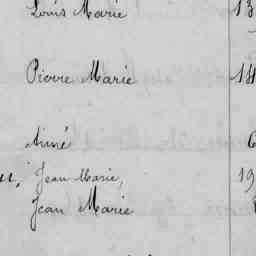 Louis Marie 13
Pierre Marie 14
Aimé 6
u, Jean Marie, 19
Jean Marie